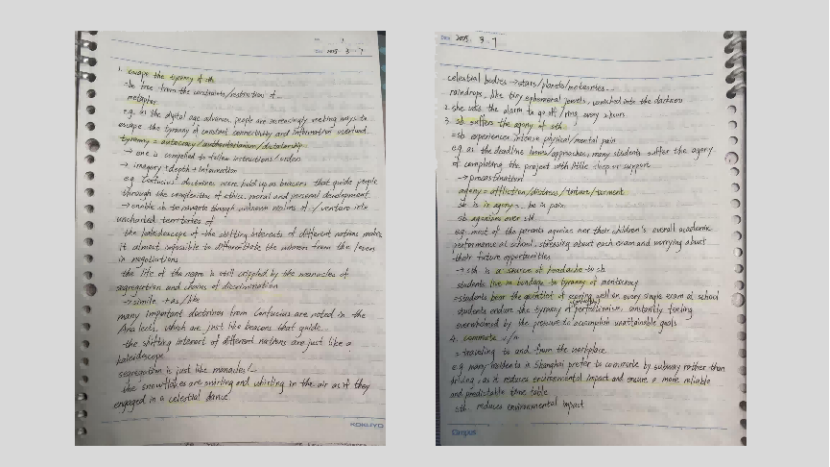 2025 . 3 . 7
1. escape the tyranny of sth
=be free from the constraints/restriction of
metaphor
e.g. as the digital age advance, people are increasingly seeking ways to
escape the tyranny of constant connectivity and information overload
tyranny = autocracy/authoritarianism/dictatorship
→ one is compelled to follow instructions/orders
→ imagery+depth+information
e.g. Confucius' doctrines were held up as beacons that guide people
through the complexities of ethics, moral and personal development
→ enable sb to navigate through unknown realms of / venture into
uncharted territories of
the kaleidoscope of the shifting interests of different nations makes
it almost impossible to differentiate the winners from the losers
in negotiations
the life of the negro is still crippled by the manacles of
segregation and chains of discrimination
→ simile +as/like
many important doctrines from Confucius are noted in the
Analects, which are just like beacons that guide
the shifting interest of different nations are just like a
kaleidoscope
segregation is just like manacles!
the snowflakes are swirling and whirling in the air as if they
engaged in a celestial dance
KOKUYO
2025 . 3 . 7
celestial bodies → stars/planets/meteorites
raindrops, like tiny ephemeral jewels, vanished into the darkness
2. she sets the alarm to go off/ring every hours
3. sb suffers the agony of sth
=sb experiences intense physical/mental pain
e.g. as the deadline looms/approaches, many students suffer the agony
of completing the project with little sleep or support
→ procrastination
agony = affliction/distress/torture/torment
sb is in agony = be in pain
sb agonizes over sth
e.g. most of the parents agonize over their children's overall academic
performance at school, stressing about each exam and worrying about
their future opportunities
→ sth is a source of headache to sb
students live in bondage to tyranny of
=students bear the of scoring well on every single exam at school
students endure the tyranny of perfectionism, constantly feeling
overwhelmed by the pressure to accomplish unattainable goals
4. commute v/n
= traveling to and from the workplace
e.g. many residents in Shanghai prefer to commute by subway rather than
driving, as it reduces environmental impact and ensure a more reliable
and predictable time table
sth reduces environmental impact
Campus